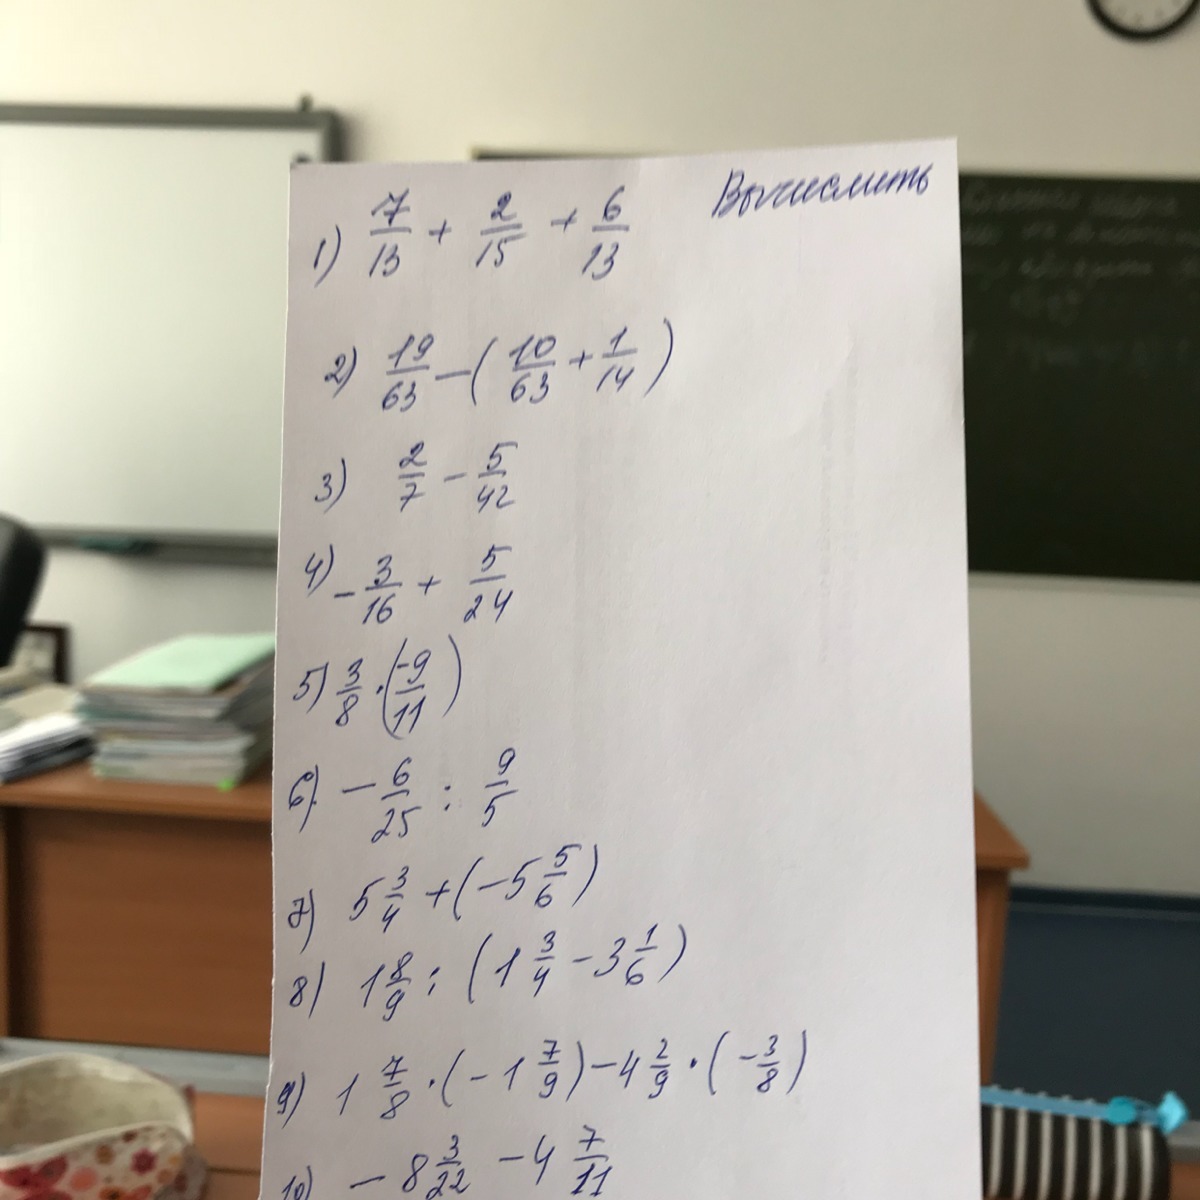 Вычислить
1) 7/13 + 2/15 + 6/13
2) 19/63 - (10/63 + 1/14)
3) 2/7 - 5/42
4) - 3/16 + 5/24
5) 3/8 · (-9/11)
6) - 6/25 : 9/5
7) 5 3/4 + (-5 5/6)
8) 1 8/9 : (1 3/4 - 3 1/6)
9) 1 7/8 · (-1 7/9) - 4 2/9 · (-3/8)
10) - 8 3/22 - 4 7/11